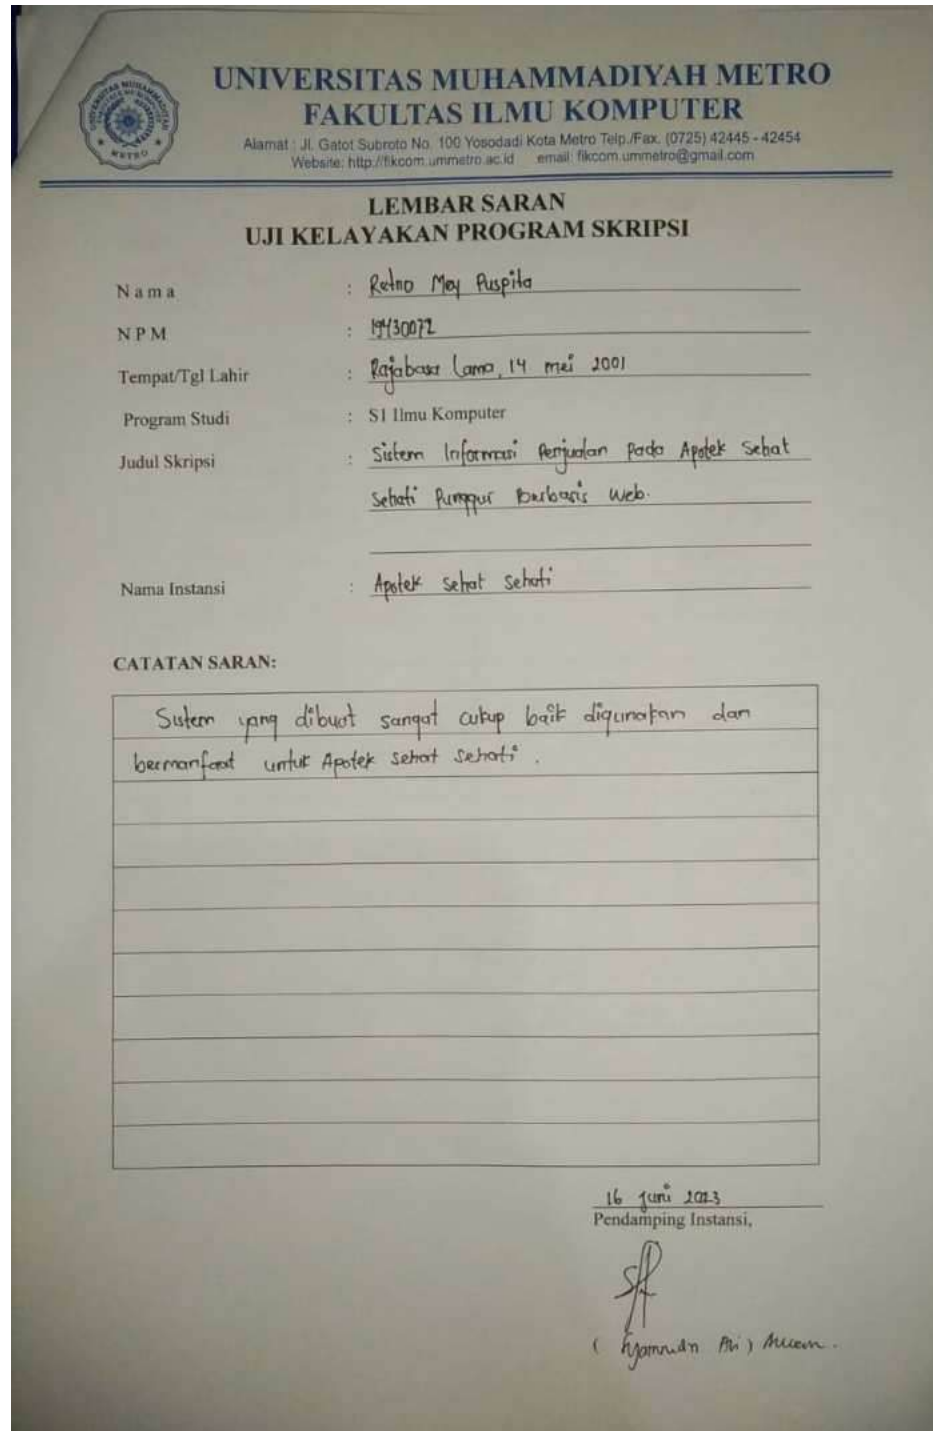 UNIVERSITAS MUHAMMADIYAH METRO
FAKULTAS ILMU KOMPUTER
Alamat : Jl. Gatot Subroto No. 100 Yosodadi Kota Metro Telp./Fax. (0725) 42445 - 42454
Website: http://fikcom.ummetro.ac.id email: fikcom.ummetro@gmail.com
LEMBAR SARAN
UJI KELAYAKAN PROGRAM SKRIPSI
Nama : Retno Mey Puspita
NPM : 19430072
Tempat/Tgl Lahir : Rajabasa Lama, 14 mei 2001
Program Studi : S1 Ilmu Komputer
Judul Skripsi : Sistem Informasi Penjualan Pada Apotek Sehat
Sehati Punggur Berbasis Web.
Nama Instansi : Apotek Sehat Sehati
CATATAN SARAN:
Sistem yang dibuat sangat cukup baik digunakan dan
bermanfaat untuk Apotek Sehat Sehati.
16 Juni 2023
Pendamping Instansi,